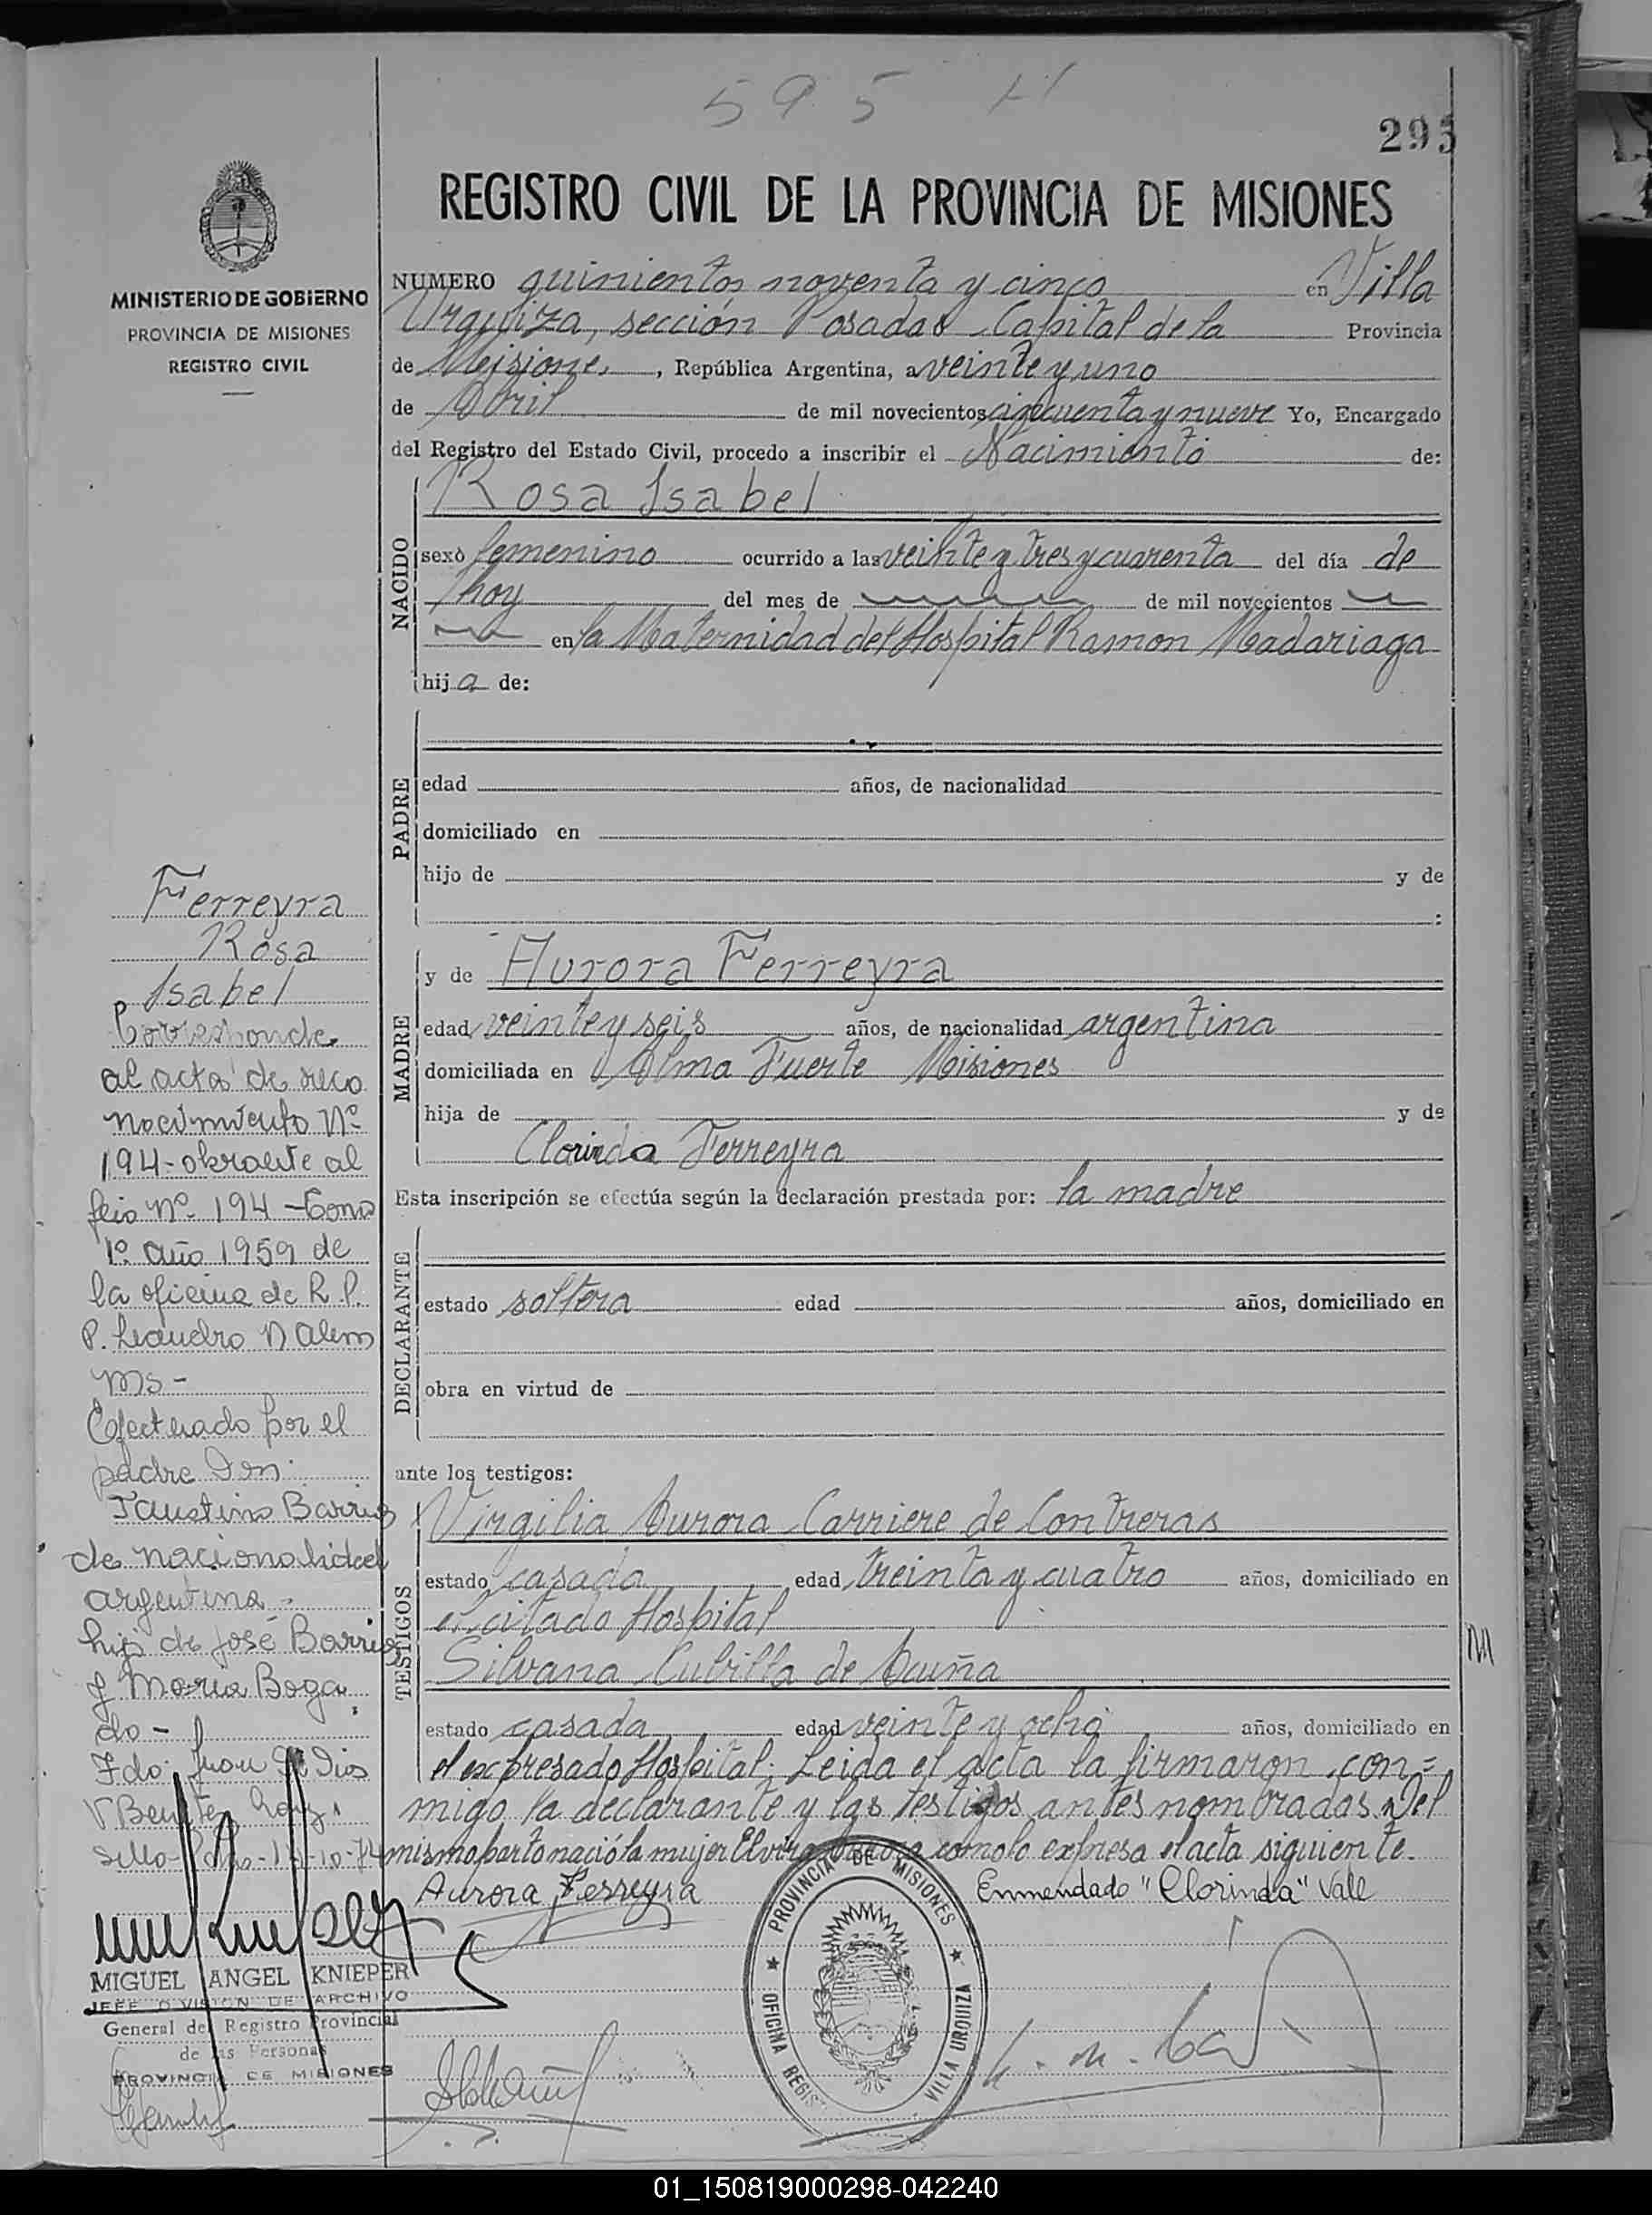 595 H
295
REGISTRO CIVIL DE LA PROVINCIA DE MISIONES
MINISTERIO DE GOBIERNO
PROVINCIA DE MISIONES
REGISTRO CIVIL
NUMERO quinientos noventa y cinco en Villa
Urquiza, sección Posadas Capital de la Provincia
de Misiones, República Argentina, a veinte y uno
de Abril de mil novecientos cincuenta y nueve Yo, Encargado
del Registro del Estado Civil, procedo a inscribir el Nacimiento de:
NACIDO
Rosa Isabel
sexo femenino ocurrido a las veinte y tres y cuarenta del día de
hoy del mes de de mil novecientos
en la Maternidad del Hospital Ramon Madariaga
hija de:
PADRE
edad años, de nacionalidad
domiciliado en
hijo de y de
:
MADRE
y de Aurora Ferreyra
edad veinte y seis años, de nacionalidad argentina
domiciliada en Alma Fuerte Misiones
hija de y de
Clorinda Ferreyra
Esta inscripción se efectúa según la declaración prestada por: la madre
DECLARANTE
estado soltera edad años, domiciliado en
obra en virtud de
ante los testigos:
TESTIGOS
Virgilia Aurora Carriere de Contreras
estado casada edad treinta y cuatro años, domiciliado en
el citado Hospital
Silvana Cubilla de Acuña
estado casada edad veinte y ocho años, domiciliado en
el expresado Hospital. Leida el acta la firmaron con=
migo la declarante y las testigos antes nombradas. Del
mismo parto nació la mujer Elvira como lo expresa el acta siguiente.
Aurora Ferreyra
Enmendado "Clorinda" Vale
Ferreyra
Rosa
Isabel
Corresponde
al acta de reco
nocimiento Nº
194- obrante al
folio Nº 194 - Tomo
1º año 1959 de
la oficina de R. P.
P. Leandro N Alem
Ms-
Efectuado por el
padre Don
Faustino Barrios
de nacionalidad
argentina-
hijo de José Barrios
y Maria Boga
do-
Fdo. Juan de Dios
V Benitez hay
sello-
MIGUEL ANGEL KNIEPER
JEFE DIVISION DE ARCHIVO
General del Registro Provincial
de las Personas
PROVINCIA DE MISIONES
PROVINCIA DE MISIONES
OFICINA REGIS
VILLA URQUIZA
M
01_150819000298-042240